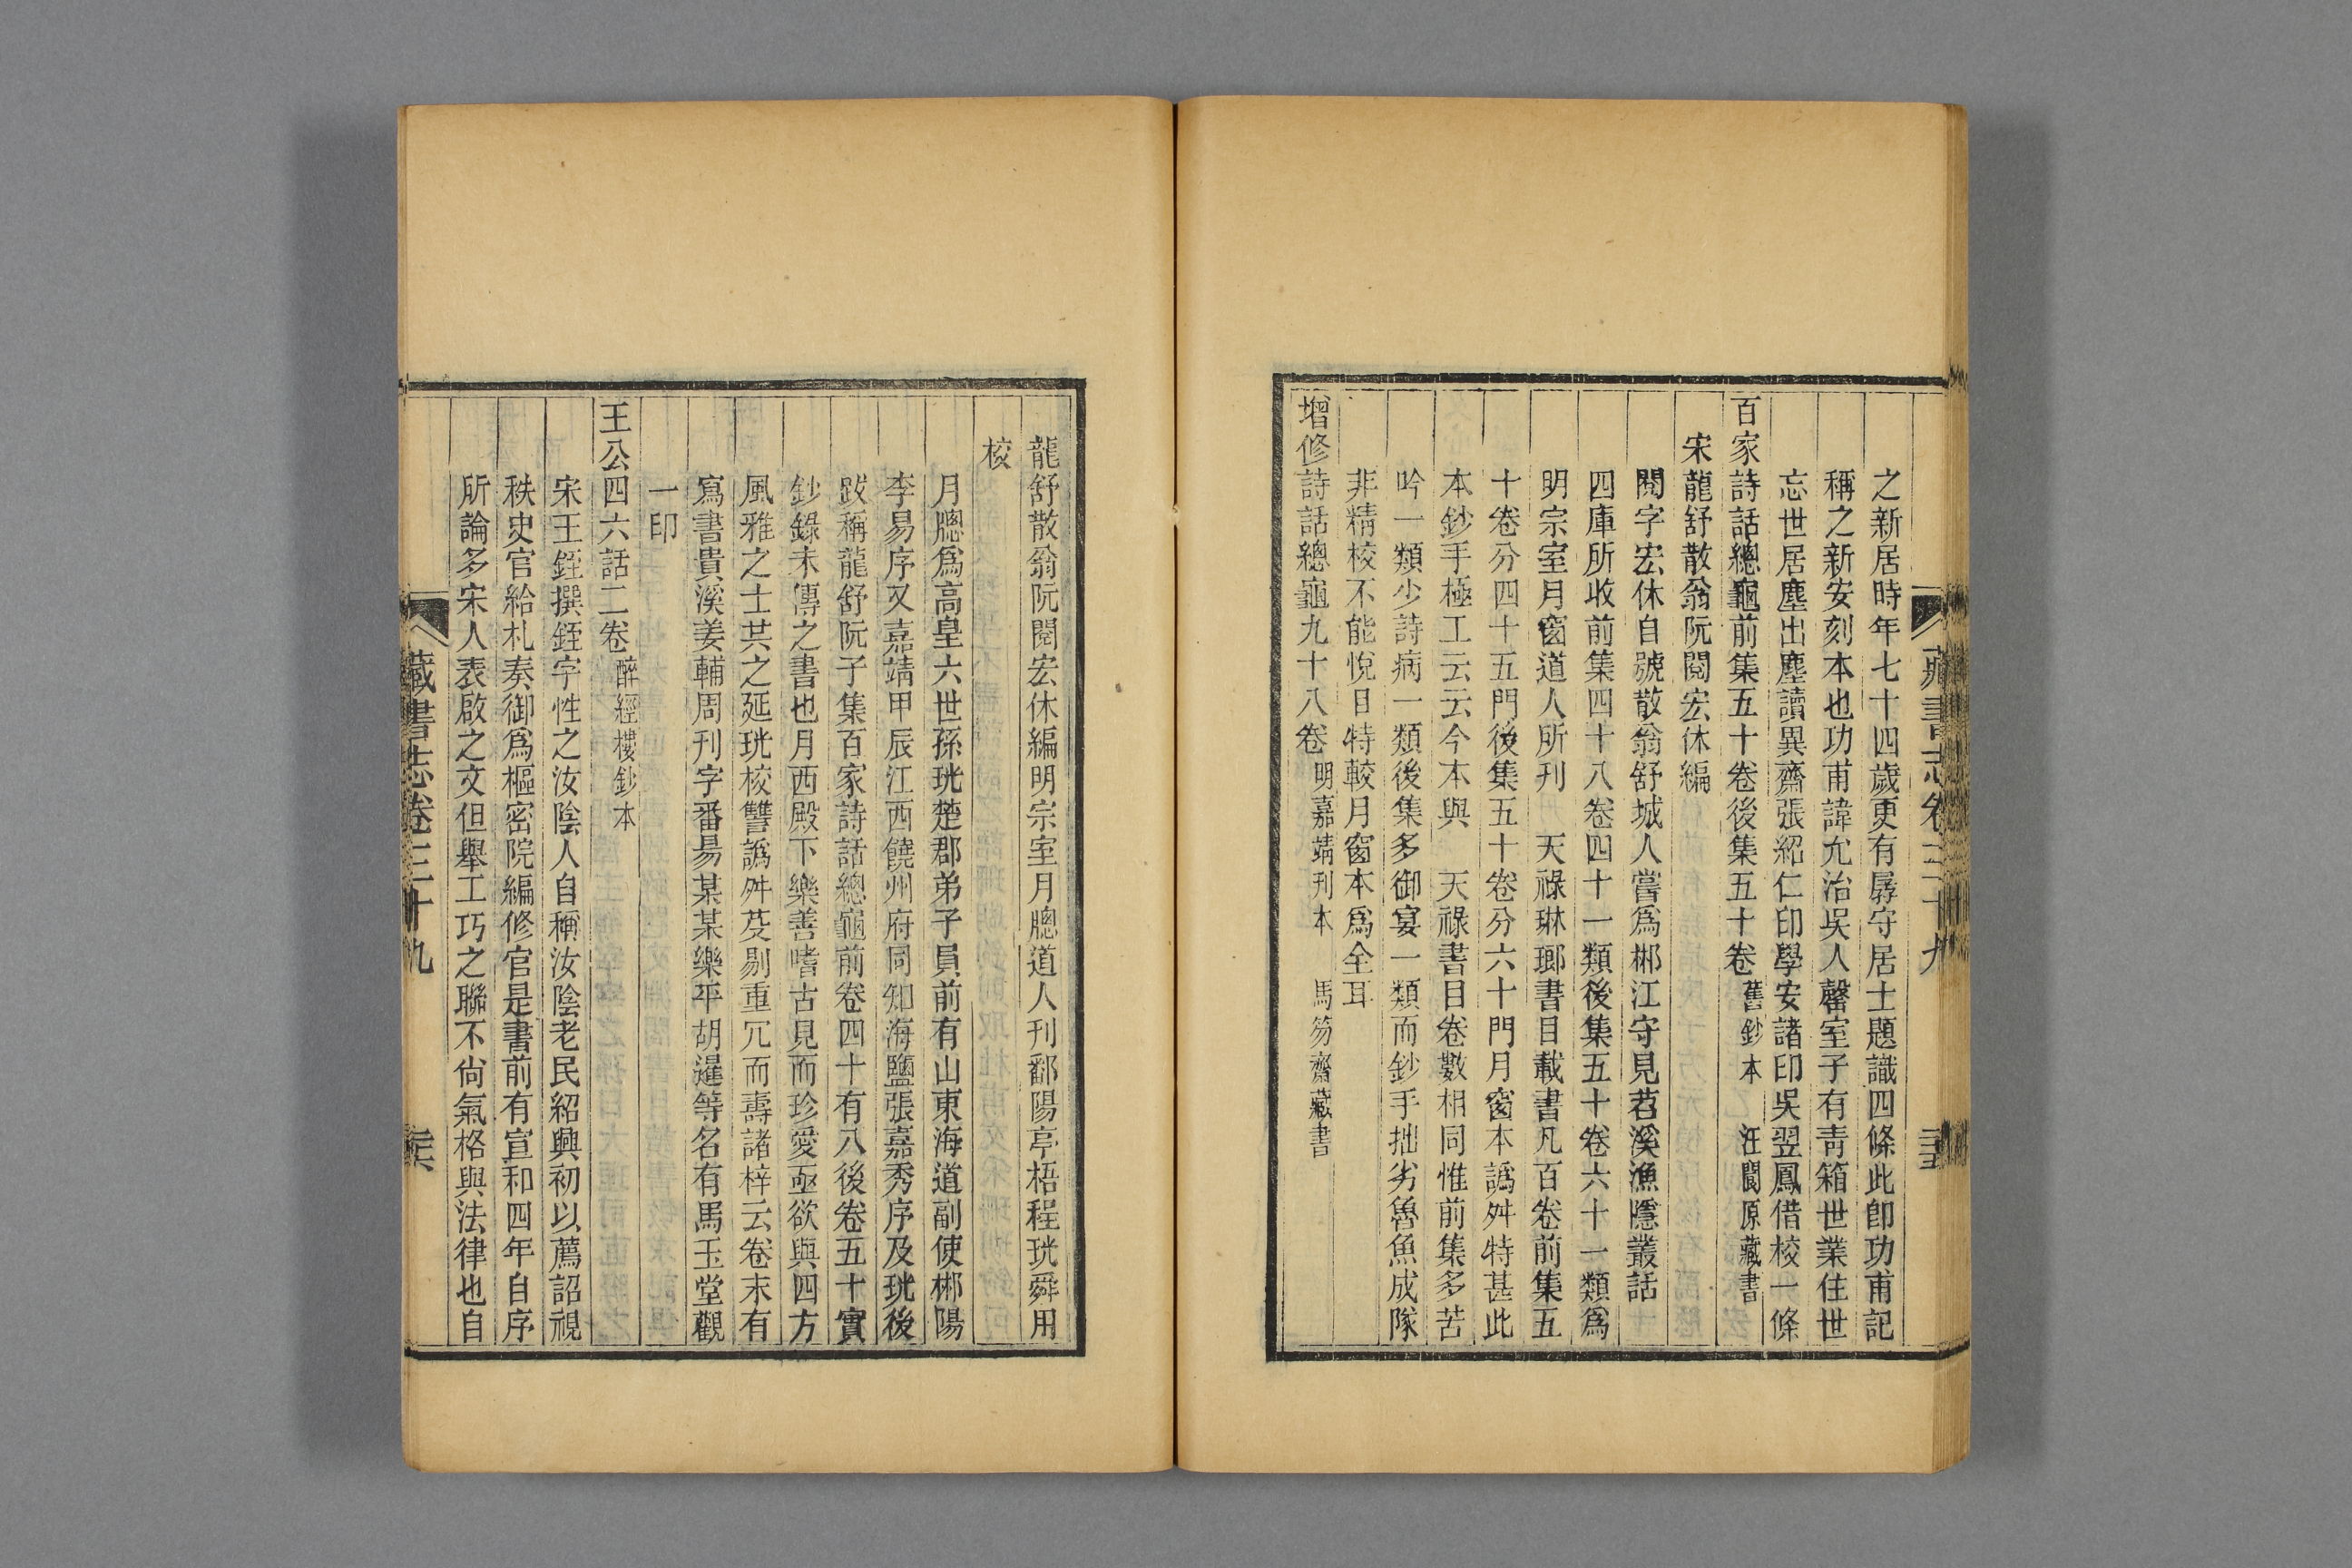 之新居時年七十四歲更有孱守居士題識四條此卽功甫記
稱之新安刻本也功甫諱允治吳人罄室子有靑箱世業住世
忘世居塵出塵讀異齋張紹仁印學安諸印吳翌鳳借校一條
百家詩話總龜前集五十卷後集五十卷 舊鈔本 汪閬原藏書
宋龍舒散翁阮閱宏休編
閱字宏休自號散翁舒城人嘗爲郴江守見苕溪漁隱叢話
四庫所收前集四十八卷四十一類後集五十卷六十一類爲
明宗室月窗道人所刊 天祿琳瑯書目載書凡百卷前集五
十卷分四十五門後集五十卷分六十門月窗本譌舛特甚此
本鈔手極工云云今本與 天祿書目卷數相同惟前集多苦
吟一類少詩病一類後集多御宴一類而鈔手拙劣魯魚成隊
非精校不能悅目特較月窗本爲全耳
增修詩話總龜九十八卷 明嘉靖刊本 馬笏齋藏書
藏書志卷三十九
龍舒散翁阮閱宏休編明宗室月牕道人刊鄱陽亭梧程珖舜用
校
月牕爲高皇六世孫珖楚郡弟子員前有山東海道副使郴陽
李易序又嘉靖甲辰江西饒州府同知海鹽張嘉秀序及珖後
跋稱龍舒阮子集百家詩話總龜前卷四十有八後卷五十實
鈔錄未傳之書也月西殿下樂善嗜古見而珍愛亟欲與四方
風雅之士共之延珖校讐譌舛芟剔重冗而壽諸梓云卷末有
寫書貴溪姜輔周刊字番昜某某樂平胡暹等名有馬玉堂觀
一印
王公四六話二卷 醉經樓鈔本
宋王銍撰銍字性之汝陰人自稱汝陰老民紹興初以薦詔視
秩史官給札奏御爲樞密院編修官是書前有宣和四年自序
所論多宋人表啟之文但舉工巧之聯不尙氣格與法律也自
藏書志卷三十九